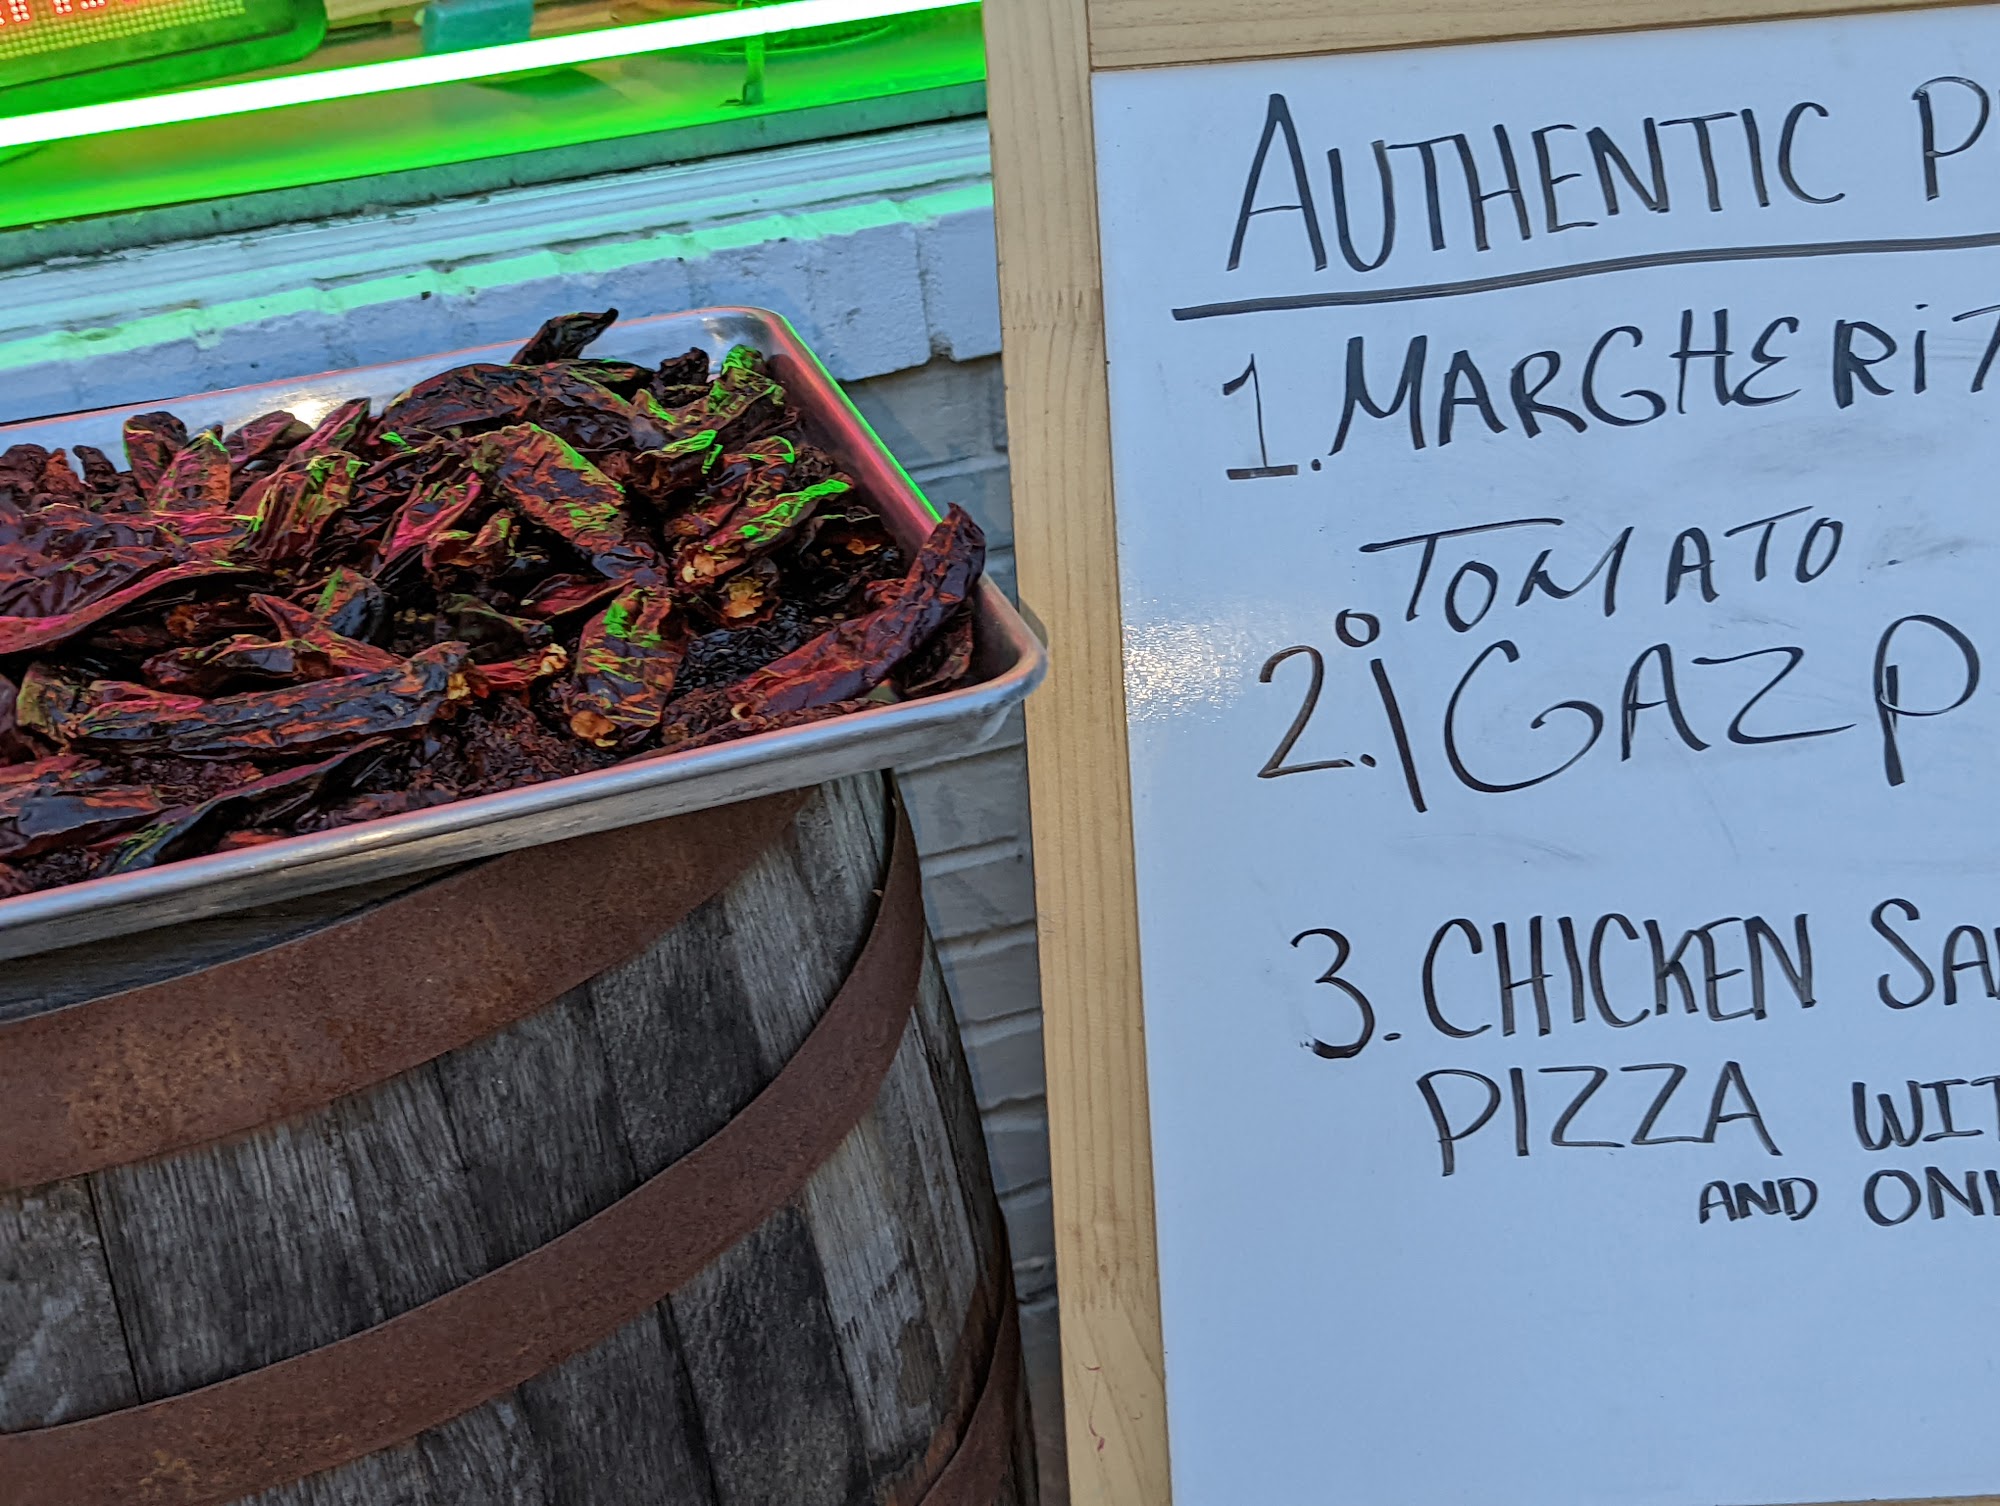 AUTHENTIC P
1. MARGHERIT
TOMATO
2. ¡GAZP
3. CHICKEN SA
PIZZA WIT
AND ONI